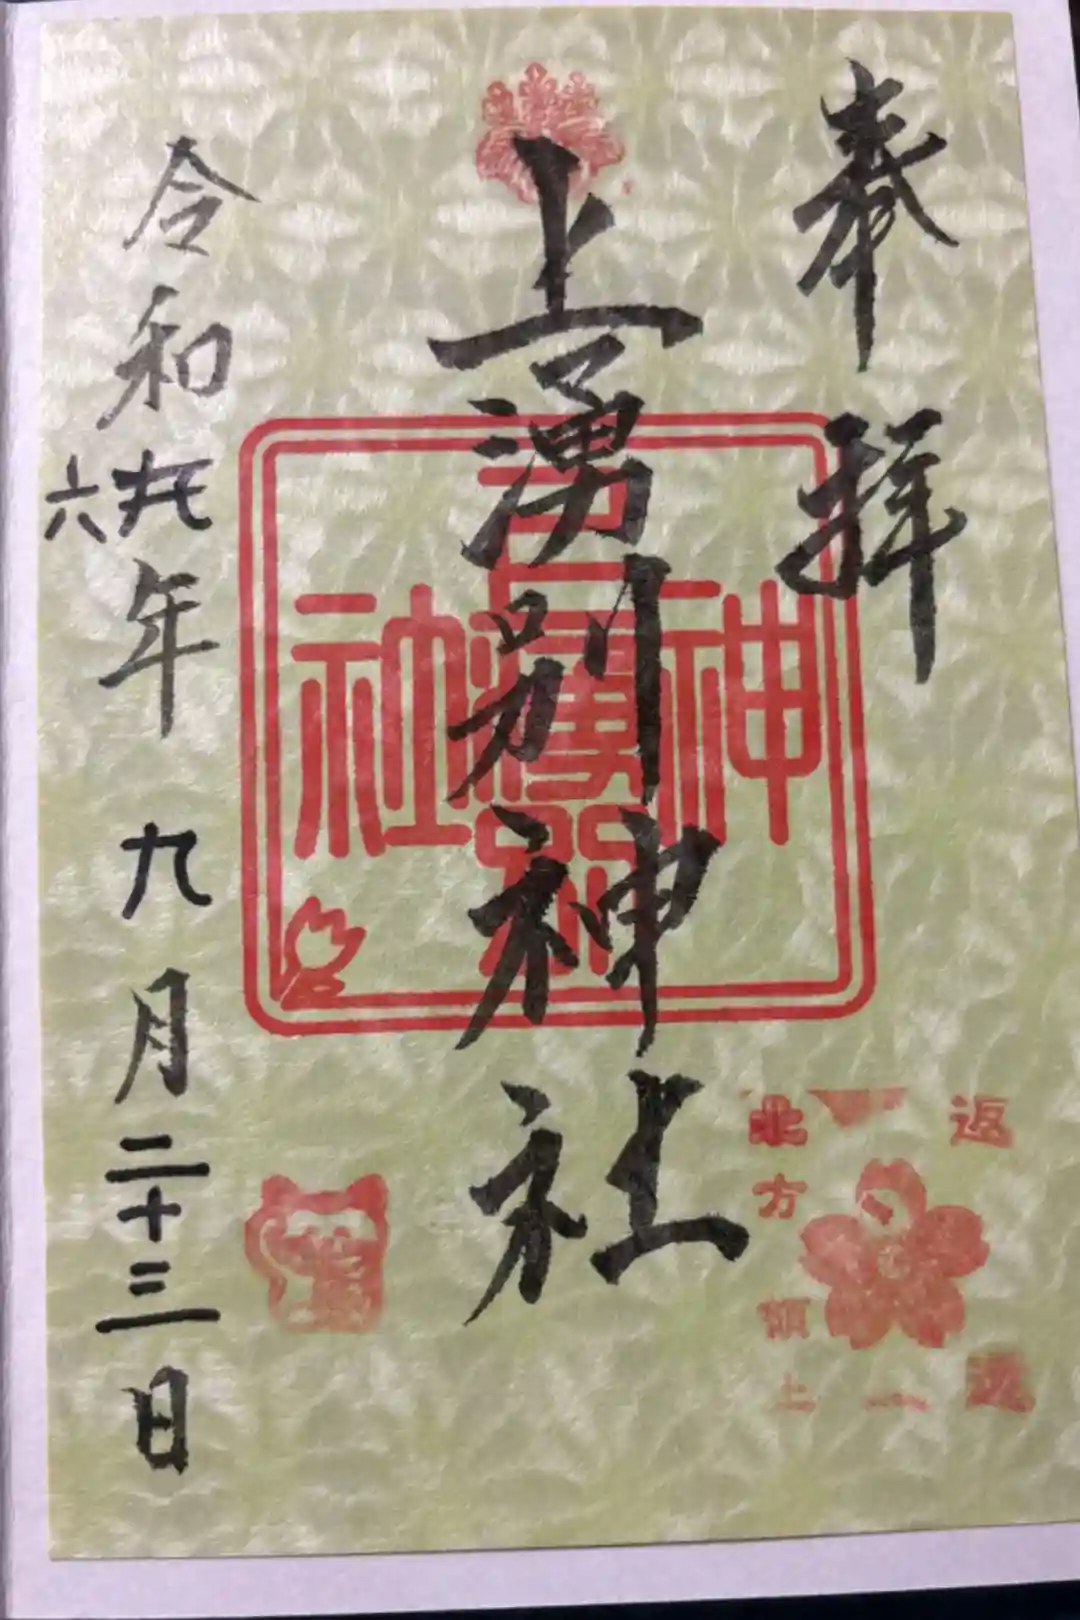 奉拝
上湧別神社
令和元年九月二十三日
六
上湧別
神社
返還
北方領土